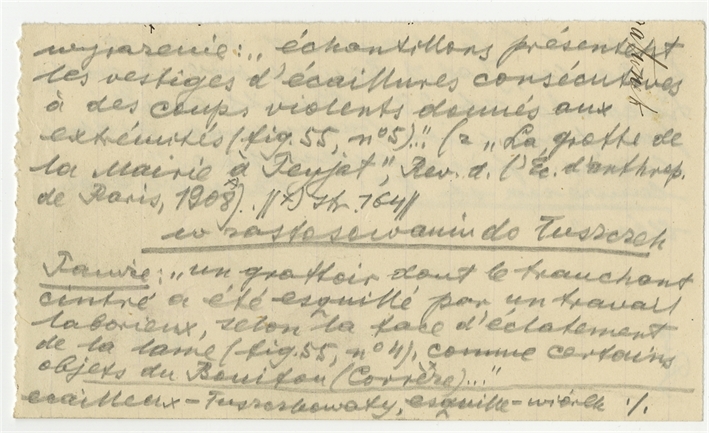 wyrażenie: „échantillons présentent
les vestiges d'écaillures consécutives
à des coups violents donnés aux
extrémités (fig. 55, n°5)..." (z „La grotte de
la Mairie à Teyjat", Rev. d. l'Ec. d'anthrop.
de Paris, 1908). //x) str. 164//
w zastosowaniu do łuszczek
Favre: „un grattoir dont le tranchant
cintré a été esquillé par un travail
laborieux, selon la face d'éclatement
de la lame (fig. 55, n°4), comme certains
objets du Bouïtou (Corrèze)..."
écailleux = łuszczkowaty, esquille = wiórek ·/.